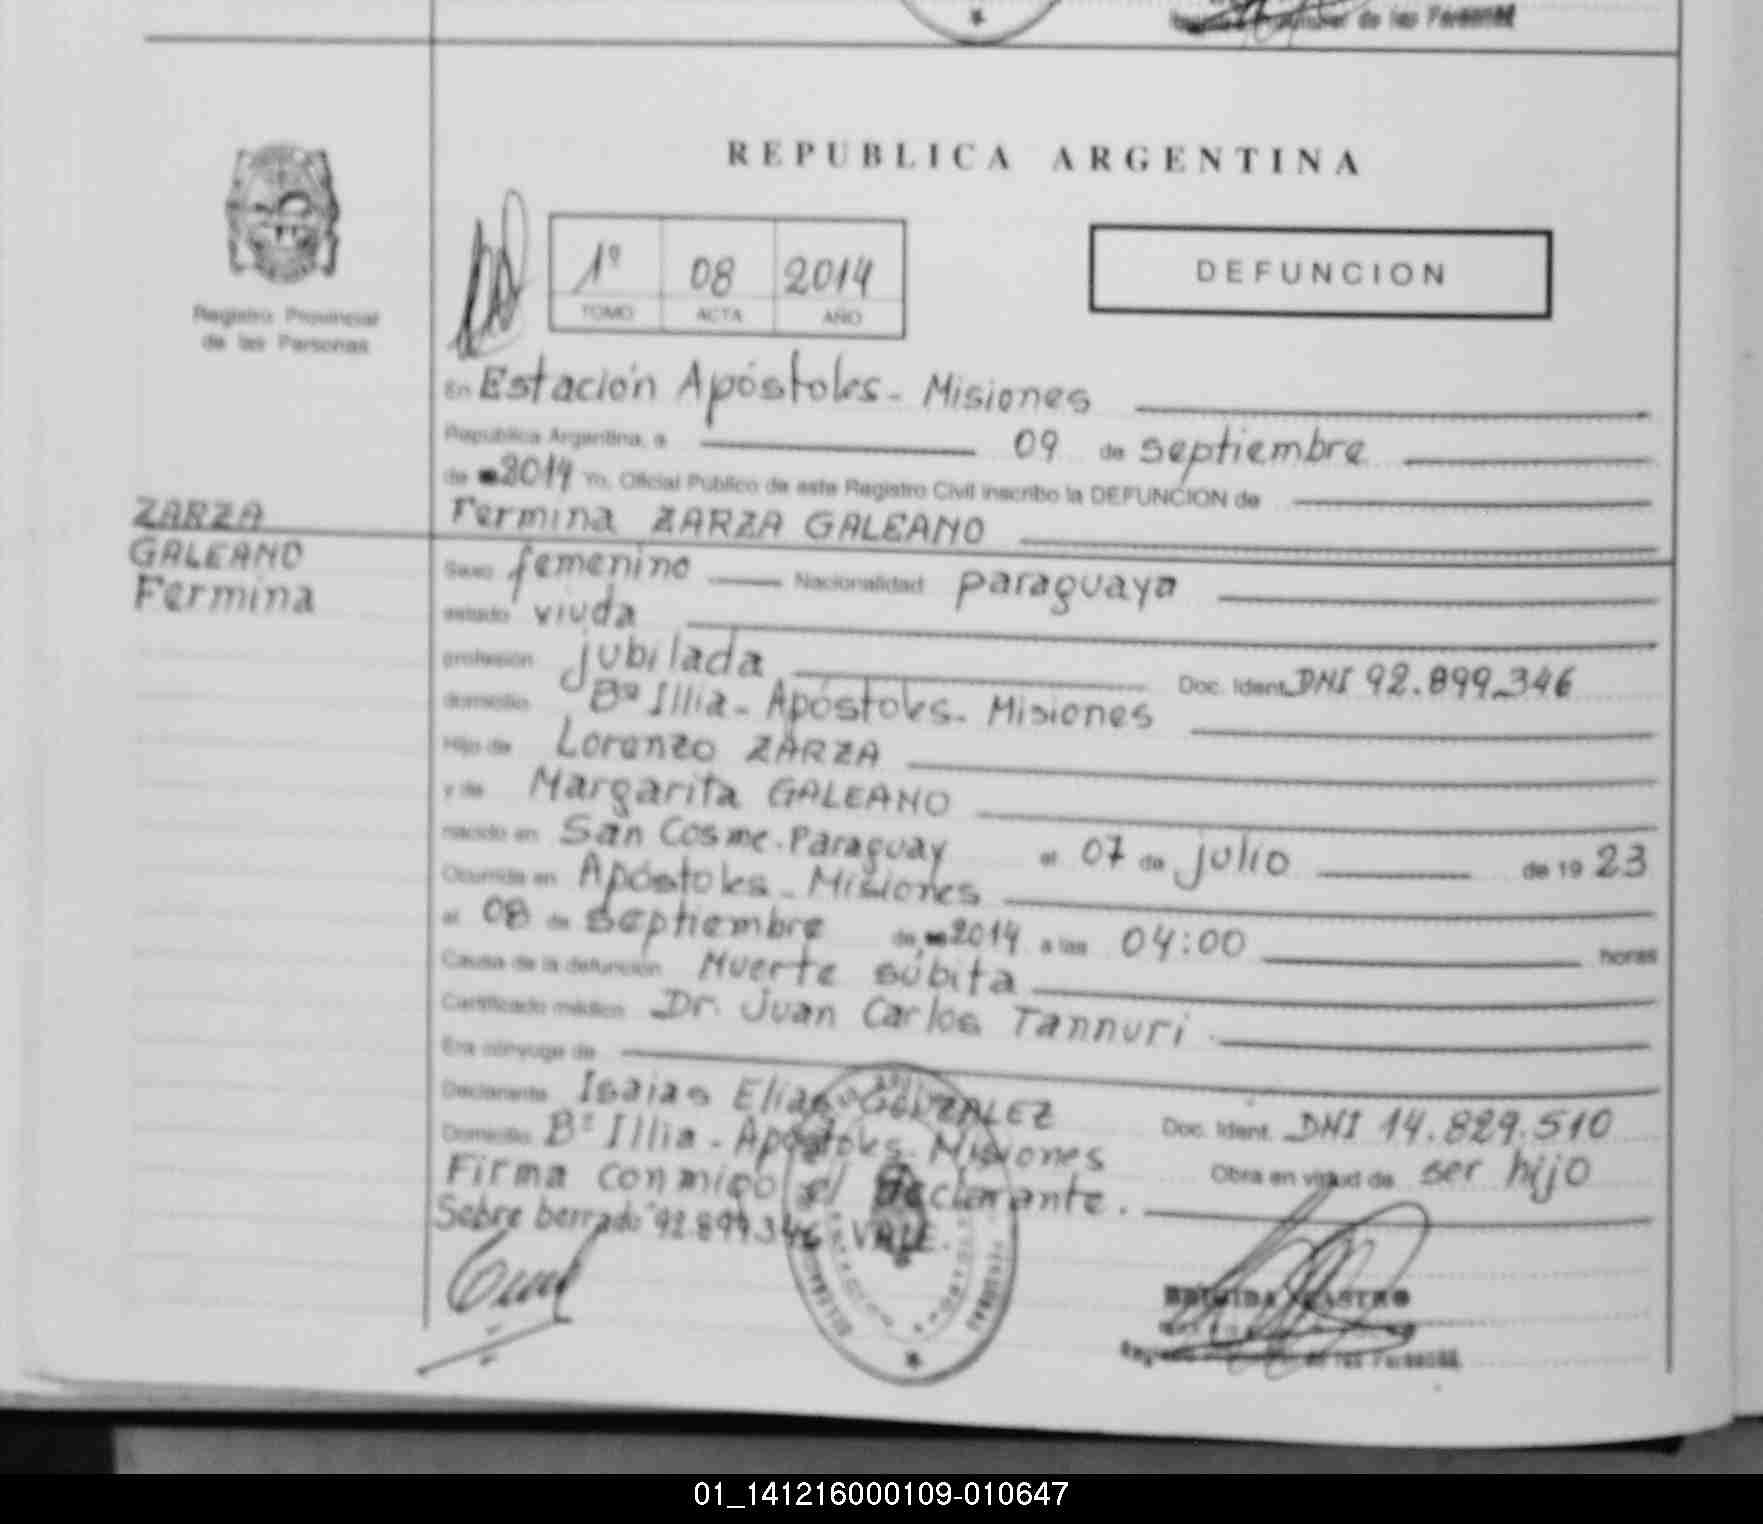 de las Personas
REPUBLICA ARGENTINA
Registro Provincial
de las Personas
1º 08 2014
TOMO ACTA AÑO
DEFUNCION
En Estación Apóstoles - Misiones
República Argentina, a 09 de septiembre
de 2014 Yo, Oficial Público de este Registro Civil inscribo la DEFUNCION de
Fermina ZARZA GALEANO
ZARZA
GALEANO
Fermina
Sexo femenino Nacionalidad paraguaya
estado viuda
profesión jubilada Doc. Ident. DNI 92.899.346
domicilio Bº Illia - Apóstoles - Misiones
Hijo de Lorenzo ZARZA
y de Margarita GALEANO
nacido en San Cosme. Paraguay el 07 de julio de 19 23
Ocurrida en Apóstoles - Misiones
el 08 de septiembre de 2014 a las 04:00 horas
Causa de la defunción Muerte súbita
Certificado médico Dr. Juan Carlos Tannuri.
Era cónyuge de
Declarante Isaias Elias GONZALEZ Doc. Ident. DNI 14.829.510
Domicilio Bº Illia - Apóstoles - Misiones Obra en virtud de ser hijo
Firma conmigo el declarante.
Sobre borrado "92.899.346" VALE.
CASTRO
de las Personas
01_141216000109-010647